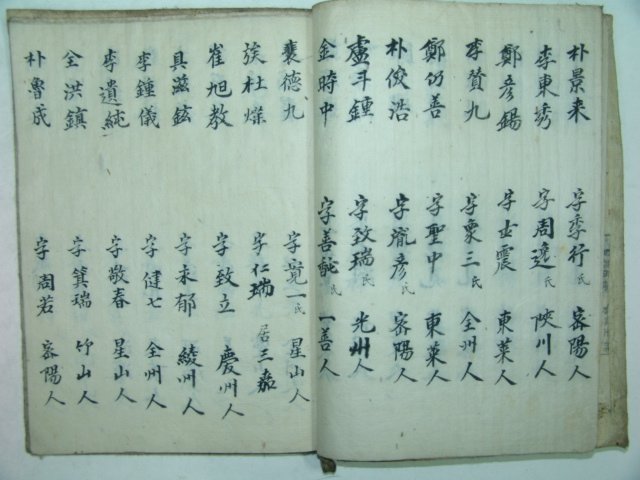 朴景来 字季行氏 密陽人
李東琇 字周邉氏 陜川人
鄭彦錫 字出震 東萊人
李賛九 字象三氏 全州人
鄭仍善 字聖中 東萊人
朴俊浩 字胤彦氏 密陽人
盧斗鍾 字致瑞氏 光州人
金時中 字善 氏 一善人
裵德九 字寛一氏 星山人
杜燦 字仁瑞 居三嘉
崔旭教 字致立 慶州人
具滋鉉 字末郁 綾州人
李鍾儀 字健七 全州人
李遺純 字敬春 星山人
全洪鎮 字箕瑞 竹山人
朴魯 字周若 密陽人